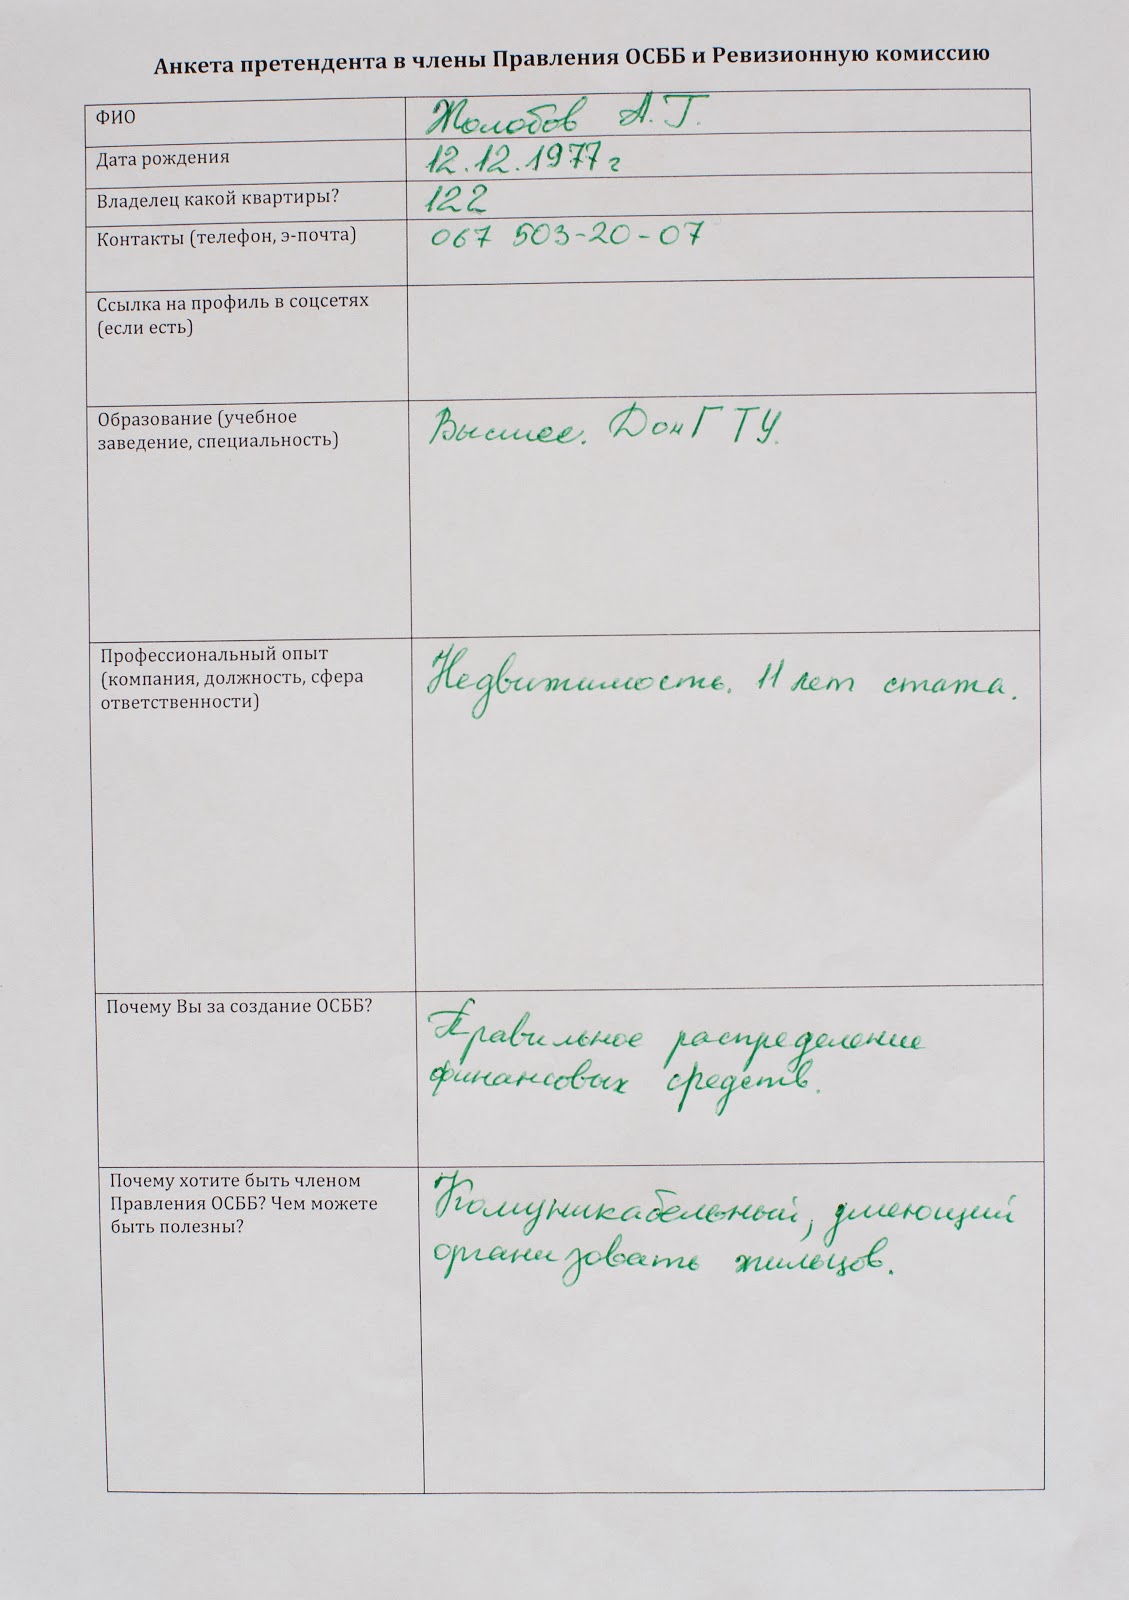 Анкета претендента в члены Правления ОСББ и Ревизионную комиссию
ФИО
Жолобов А.Г.
Дата рождения
12.12.1977 г
Владелец какой квартиры?
122
Контакты (телефон, э-почта)
067 503-20-07
Ссылка на профиль в соцсетях
(если есть)
Образование (учебное
заведение, специальность)
Высшее. ДонГТУ.
Профессиональный опыт
(компания, должность, сфера
ответственности)
Недвижимость. 11 лет стажа.
Почему Вы за создание ОСББ?
Правильное распределение
финансовых средств.
Почему хотите быть членом
Правления ОСББ? Чем можете
быть полезны?
Комуникабельный, умеющий
организовать жильцов.